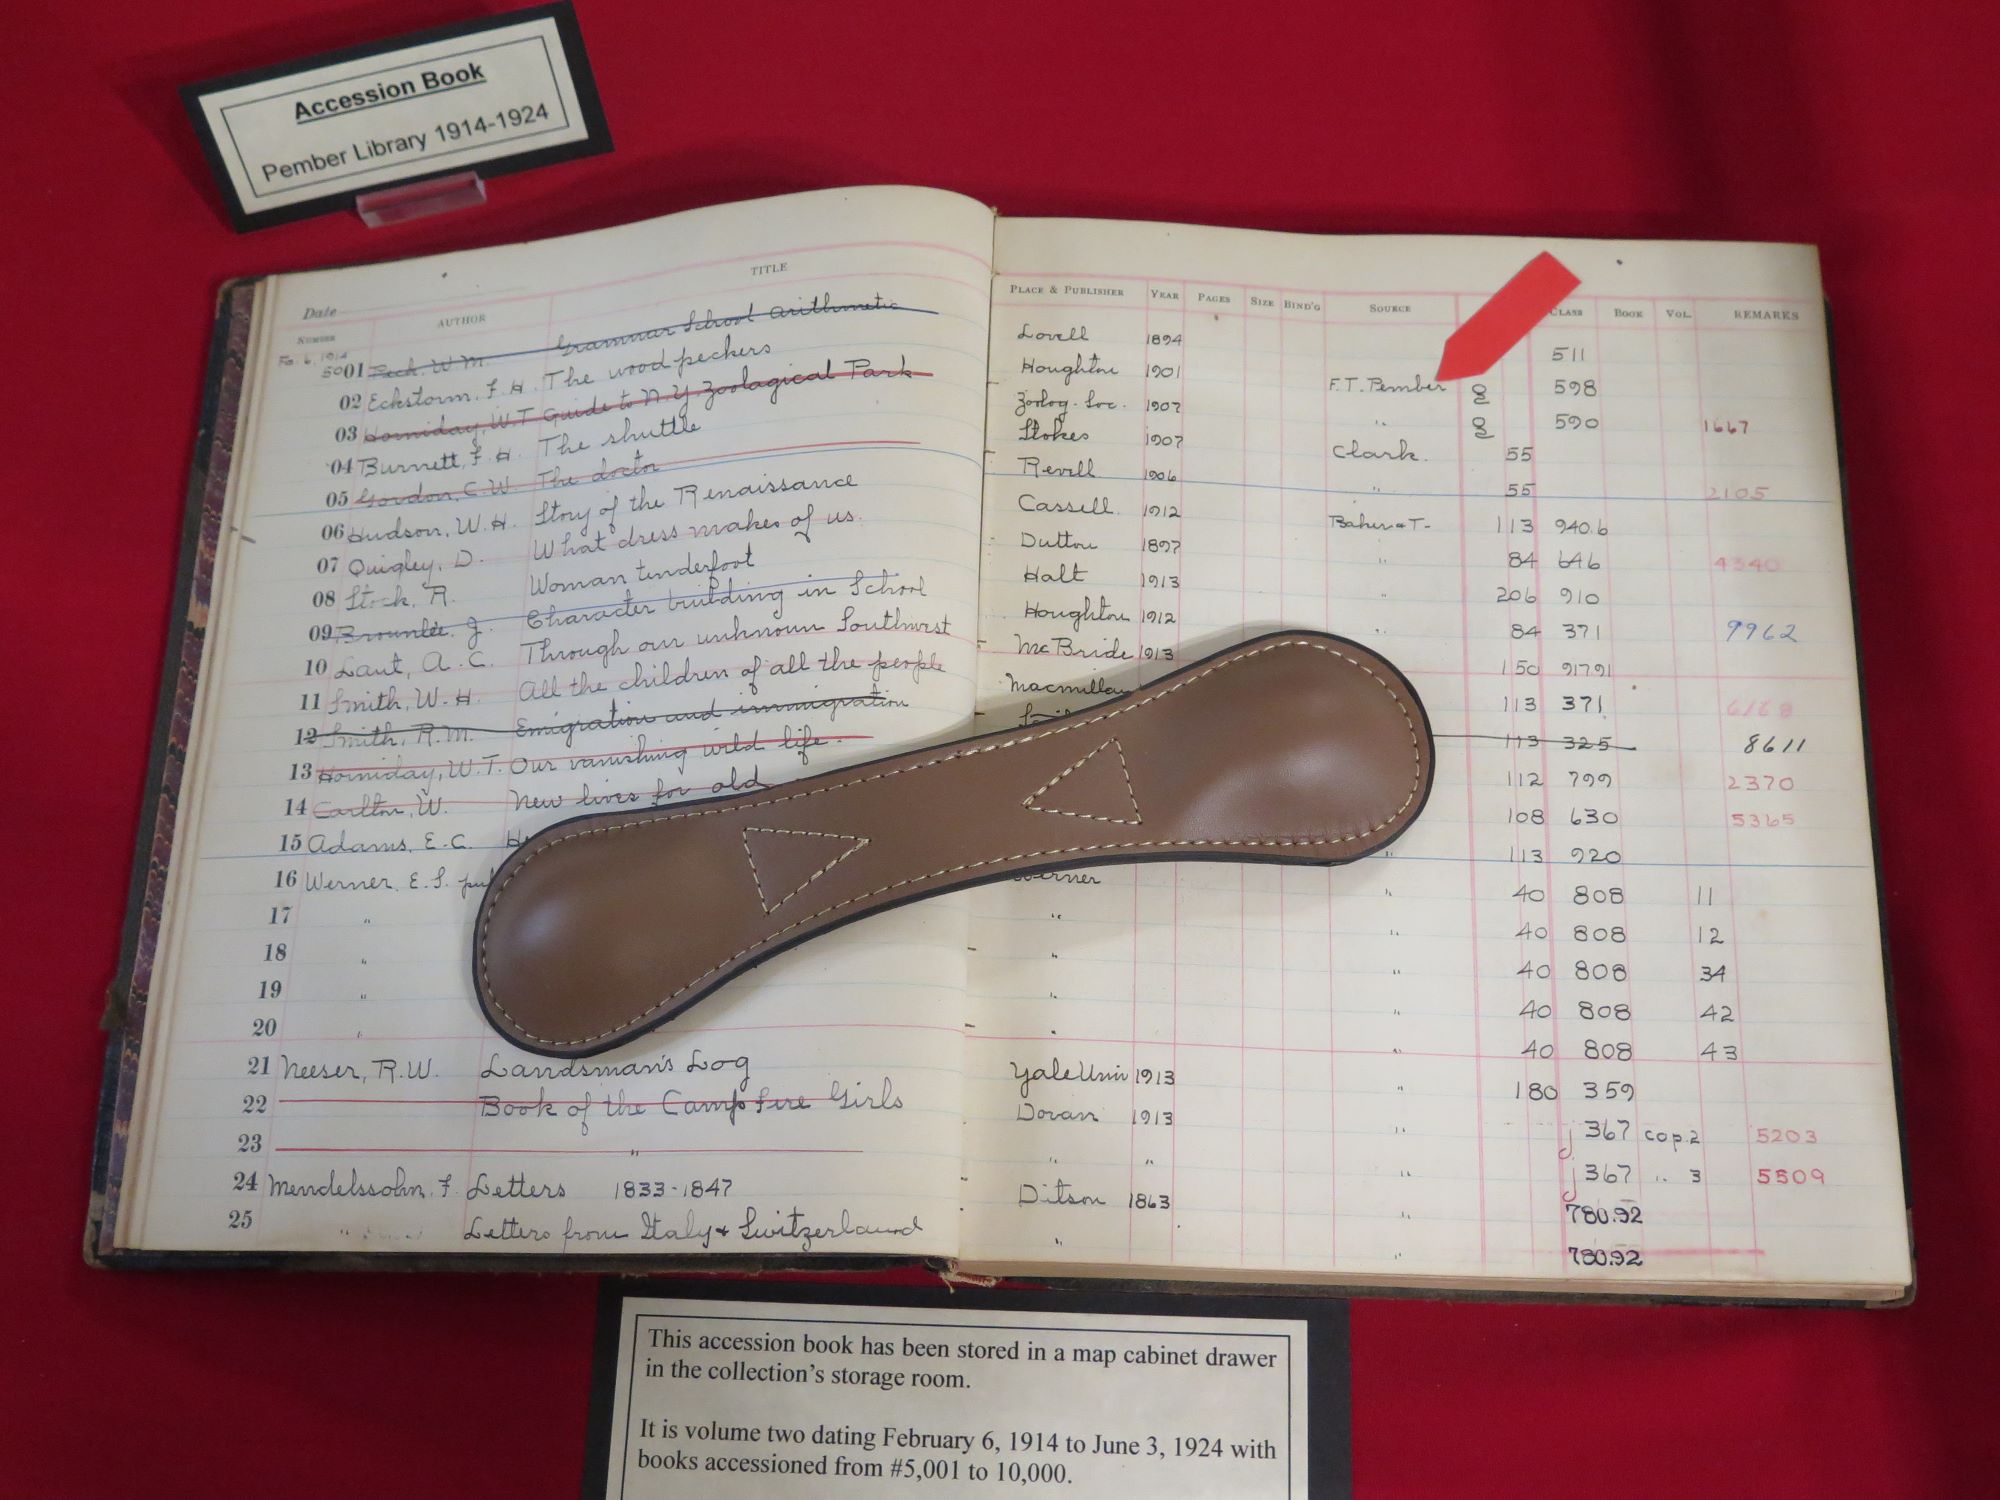 Accession Book
Pember Library 1914-1924
TITLE
Date
NUMBER AUTHOR
PLACE & PUBLISHER YEAR PAGES SIZE BIND'G SOURCE CLASS BOOK VOL. REMARKS
Fe. 6. 1914
5001 Peck, W.M. Grammar School arithmetic Lovell 1894 511
02 Eckstorm, F. H. The wood peckers Houghton 1901 F.T. Pember g 598
03 Horniday, W.T Guide to N.Y. Zoological Park Zoolog. Soc. 1907 " g 590 1667
04 Burnett, F. H. The shuttle Stokes 1907 Clark. 55
05 Gordon, C.W. The doctor Revell 1906 " 55 2105
06 Hudson, W.H. Story of the Renaissance Cassell. 1912 Baker & T- 113 940.6
07 Quigley, D. What dress makes of us. Dutton 1897 " 84 646 4340
08 Stock, R. Woman tenderfoot Holt 1913 " 206 910
09 Brownlee. J. Character building in School Houghton 1912 " 84 371 9962
10 Laut, A. C. Through our unknown Southwest McBride 1913 150 91791
11 Smith, W. H. All the children of all the people Macmillan 113 371 6168
12 Smith, R.M. Emigration and immigration 113 325 8611
13 Horniday, W.T. Our vanishing wild life. 112 799 2370
14 Carlton, W. New lives for old 108 630 5365
15 Adams, E. C. " 113 920
16 Werner, E. S. pub Werner " 40 808 11
17 " " " 40 808 12
18 " " " 40 808 34
19 " " " 40 808 42
20 " " " 40 808 43
21 Neeser, R.W. Landsman's Log Yale Univ 1913 " 180 359
22 Book of the Camp Fire Girls Doran 1913 " j 367 cop. 2 5203
23 " " " " j 367 " 3 5509
24 Mendelssohn, F. Letters 1833-1847 Ditson 1863 " 780.92
25 " Letters from Italy & Switzerland " " 780.92
This accession book has been stored in a map cabinet drawer
in the collection's storage room.
It is volume two dating February 6, 1914 to June 3, 1924 with
books accessioned from #5,001 to 10,000.